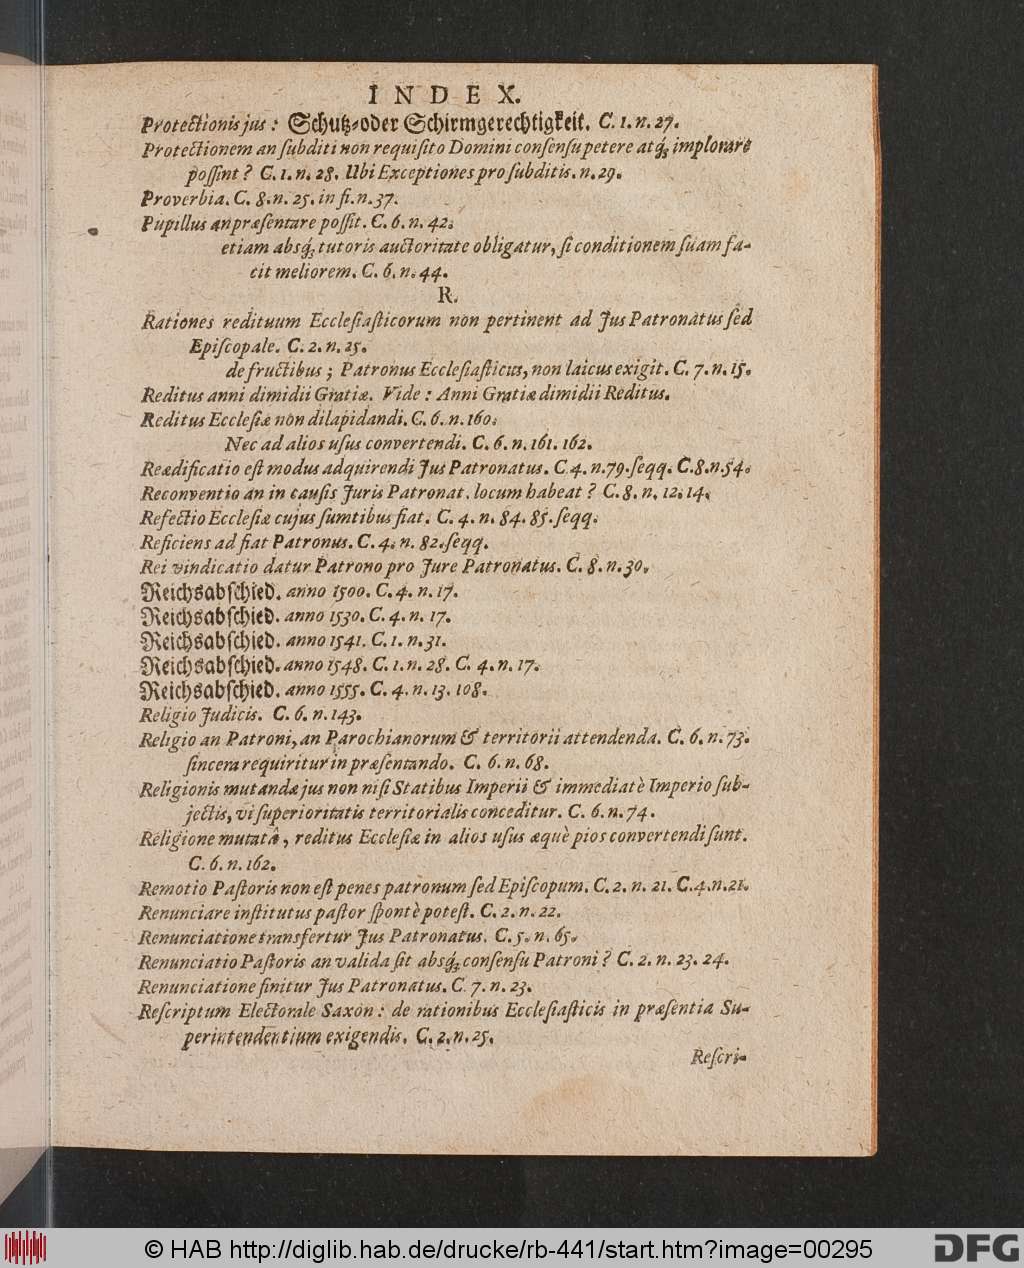 INDEX.
Protectionis jus: Schutz-oder Schirmgerechtigkeit. C. 1. n. 27.
Protectionem an ſubditi non requiſito Domini conſenſu petere atq́; implorare
poſſint? C. 1. n. 28. Ubi Exceptiones pro ſubditis. n. 29.
Proverbia. C. 8. n. 25. in fi. n. 37.
Pupillus an præſentare poſſit. C. 6. n. 42.
etiam absq́; tutoris auctoritate obligatur, ſi conditionem ſuam fa-
cit meliorem. C. 6. n. 44.
R.
Rationes redituum Eccleſiaſticorum non pertinent ad Jus Patronatus ſed
Epiſcopale. C. 2. n. 25.
de fructibus; Patronus Eccleſiaſticus, non laicus exigit. C. 7. n. 15.
Reditus anni dimidii Gratiæ. Vide: Anni Gratiæ dimidii Reditus.
Reditus Eccleſiæ non dilapidandi. C. 6. n. 160.
Nec ad alios uſus convertendi. C. 6. n. 161. 162.
Reædificatio eſt modus adquirendi Jus Patronatus. C. 4. n. 79. ſeqq. C. 8. n. 54.
Reconventio an in cauſis Juris Patronat. locum habeat? C. 8. n. 12. 14.
Refectio Eccleſiæ cujus ſumtibus fiat. C. 4. n. 84. 85. ſeqq.
Reficiens ad fiat Patronus. C. 4. n. 82. ſeqq.
Rei vindicatio datur Patrono pro Jure Patronatus. C. 8. n. 30.
Reichsabſchied. anno 1500. C. 4. n. 17.
Reichsabſchied. anno 1530. C. 4. n. 17.
Reichsabſchied. anno 1541. C. 1. n. 31.
Reichsabſchied. anno 1548. C. 1. n. 28. C. 4. n. 17.
Reichsabſchied. anno 1555. C. 4. n. 13. 108.
Religio Judicis. C. 6. n. 143.
Religio an Patroni, an Parochianorum & territorii attendenda. C. 6. n. 73.
ſincera requiritur in præſentando. C. 6. n. 68.
Religionis mutandæ jus non niſi Statibus Imperii & immediatè Imperio ſub-
jectis, vi ſuperioritatis territorialis conceditur. C. 6. n. 74.
Religione mutatâ, reditus Eccleſiæ in alios uſus æquè pios convertendi ſunt.
C. 6. n. 162.
Remotio Paſtoris non eſt penes patronum ſed Epiſcopum. C. 2. n. 21. C. 4. n. 21.
Renunciare inſtitutus paſtor ſpontè poteſt. C. 2. n. 22.
Renunciatione transfertur Jus Patronatus. C. 5. n. 65.
Renunciatio Paſtoris an valida ſit absq́; conſenſu Patroni? C. 2. n. 23. 24.
Renunciatione finitur Jus Patronatus. C. 7. n. 23.
Reſcriptum Electorale Saxon: de rationibus Eccleſiaſticis in præſentia Su-
perintendentium exigendis. C. 2. n. 25.
Reſcri-
© HAB http://diglib.hab.de/drucke/rb-441/start.htm?image=00295
DFG